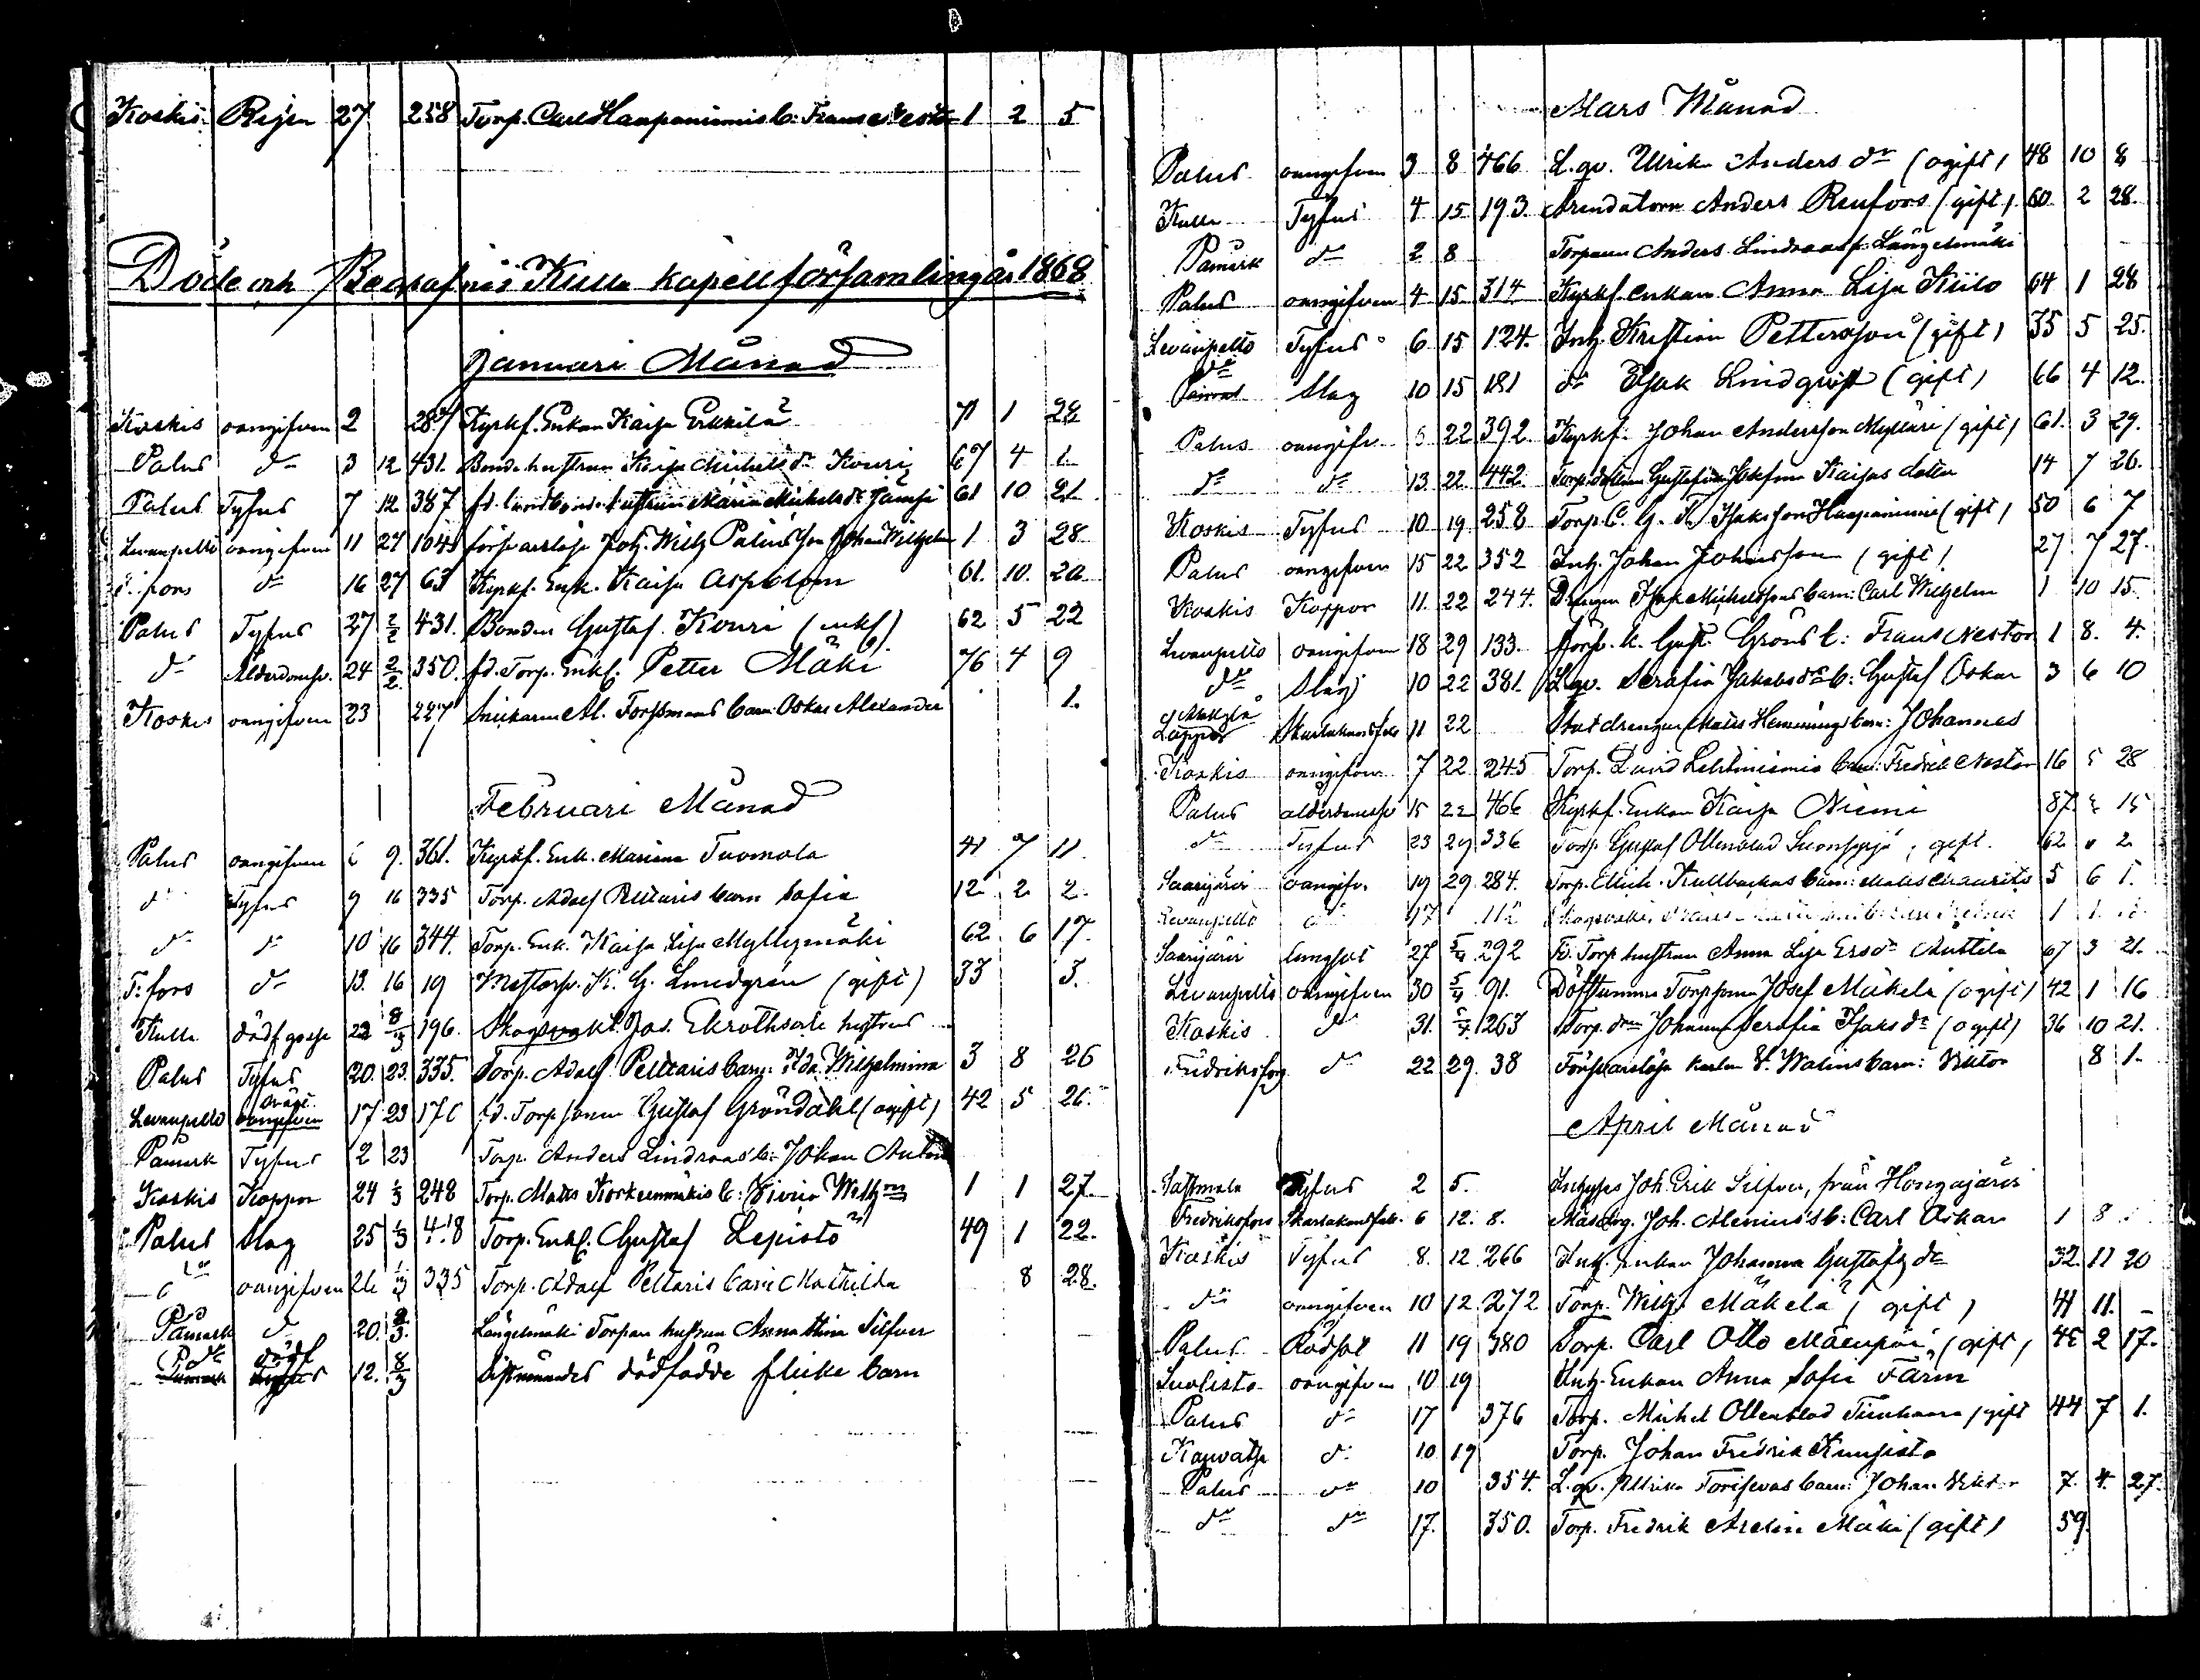 Koskis Rysn 27 258 Torp. Carl Haapaniemis b: Frans Nestor 1 2 5
Döde och Begrafne i Kulla kapellförsamling år 1868
Januari Månad
Koskis oangifven 2 287 Kyrkf. Enkan Kaisa Erkkilä 71 1 28
Palus do 3 12 431. Bonde hustrun Kaisa Michelsdr Kouri 67 4 1
Palus Tyfus 7 12 387 fd. landbonde hustrun Maria Michelsdr Jämsi 61 10 21
Levanpelto oangifven 11 27 104 försvarslöse Joh. Wilh Palin's son Johan Wilhelm 1 3 28
F. fors do 16 27 63 Kyrkf. Enk. Kaisa Asplom 61. 10. 20
Palus Tyfus 27 2/2 431. Bonden Gustaf Kouri (enkl) 62 5 22
do Ålderdomsv. 24 2/2 350. fd. Torp. Enkl: Petter Mäki 76 4 9
Koskis oangifven 23 227 Snickaren Al. Forssmans barn Oskar Alexander 1.
Februari Månad
Palus oangifven 9. 361. Kyrkf. Enk. Mariana Tuomola 41 7 11.
do Tyfus 9 16 335 Torp. Adolf Peltaris barn Sofia 12 2 2.
do do 10 16 344. Torp. Enk. Kaisa Lisa Myllymäki 62 6 17.
F. fors do 13. 16 19 K. G. Lindgren (gift) 33 3.
Kulla dödf gosse 22 8/3 196. Skogsvakt. Jos. Ekroths hustrus
Palus Tyfus 20. 23. 335. Torp. Adolf Peltaris barn: Ida Wilhelmina 3 8 26
Levanpelto oangifven 17 23 170 fd. Torp sonen Gustaf Gröndahl (ogift) 42 5 26.
Påmark Tyfus 2 23 Torp. Anders Lindroos b: Johan Anton
Koskis Koppor 24 1/3 248 Torp. Matts Korkeemäkis b: Wilhm 1 1 27
Palus Slag 25 1/3 418 Torp. Enkl. Gustaf Lepistö 49 1 22.
do oangifven 26 1/3 335 Torp. Adolf Peltaris barn Mathilda 8 28.
Påmark do 20. 8/3. Längelmäki Torpare hustrun Anna Stina Silfver
do dödf 12. 8/3 dödfödde flicke barn
Mars Månad
Palus oangifven 3 8 466 L. qv. Ulrika Andersdr (ogift) 48 10 8
Kulla Tyfus 4 15 193. Arendatorn Anders Renfors (gift) 60 2 28.
Påmark do 2 8 Torparen Anders Lindroos fr. Längelmäki
Palus oangifven 4 15 314 Kyrkf. enkan Anna Lisa Kiilo 64 1 28
Levanpelto Tyfus 6 15 124. Inh. Kristian Pettersson (gift) 35 5 25.
do Slag 10 15 181 do Isak Lindqvist (gift) 66 4 12.
Palus oangifv. 22 392. Kyrkf. Johan Andersson Mylläri (gift) 61. 3 29.
do do 13 22 442. Torp. dottern Gustafva Josefina Kaisas dotter 14 7 26.
Koskis Tyfus 10 19 258 Torp. C. G. Isaksson Haapaniemi (gift) 50 6 7
Palus oangifven 15 22 352 Inh. Johan Johansson (gift) 27 7 27.
Koskis Koppor 11. 22 244. Drengen Isak Michelssons barn: Carl Wilhelm 1 10 15.
Levanpelto oangifven 18 29 133. Försv. k. Gust. Gröns b: Frans Nestor 1 8. 4.
do Slag 10 22 381. L. qv. Serafia Jakobsdr b: Gustaf Oskar 3 6 10
Skarlakansfeber 11 22 Statdrengen Matts Hemmings barn: Johannes
Koskis oangifven 7 22 245 Torp. David Lehtiniemis barn: Fredrik Nestor 16 28
Palus ålderdomssv 15 22 466 Kyrkf. Enkan Kaisa Niemi 87. 15
do Tyfus 23 29 336 Torp. Gustaf Ollenblad gift. 62 2
Saarijärvi oangifv. 19 29. 284. Torp. Mich. Kullbackas barn: Matts Mauritz 5 6 1.
Levanpelto do 17 112
Saarijärvi lungsot 27 5/4 292 Fd. Torp hustrun Anna Lisa Ersdr Anttila 67 3 21.
Levanpelto oangifven 30 5/4 91. Döfstumme Torp sonen Josef Mäkelä (ogift) 42 1 16
Koskis do 31. 5/4 263 Torp. Johanna Serafia Isaksdr (ogift) 36 10 21.
Fredriksfors do 22 29. 38 Försvarslöse karlen V. Walins barn: Viktor 8 1.
April Månad
Sastmola Tyfus 2 5. Inhyses Joh. Erik Silfver, från Hongajärvi
Fredriksfors Skarlakansfeb. 6 12. 8. Joh. Alenius's b: Carl Oskar 1 8
Koskis Tyfus 8. 12 266 Inh. enkan Johanna Gustafsdr 32. 11 20
do oangifven 10 12. 272 Torp. Wilh. Mäkelä (gift) 41 11. -
Palus Rödsot 11 19 380 Torp. Carl Otto Mäenpää (gift) 45 2 17.
oangifven 10 19 Inh. Enkan Anna Sofia Färm
Palus do 17 376 Torp. Michel Ollenblad (gift 44 7 1.
Kauvatsa do 10 19 Torp. Johan Fredrik Kuusisto
Palus do 10 354. L. qv. Ulrika Torisevas barn: Johan Viktor 7. 4. 27.
do do 17. 350. Torp. Fredrik Arelin Mäki (gift) 59.